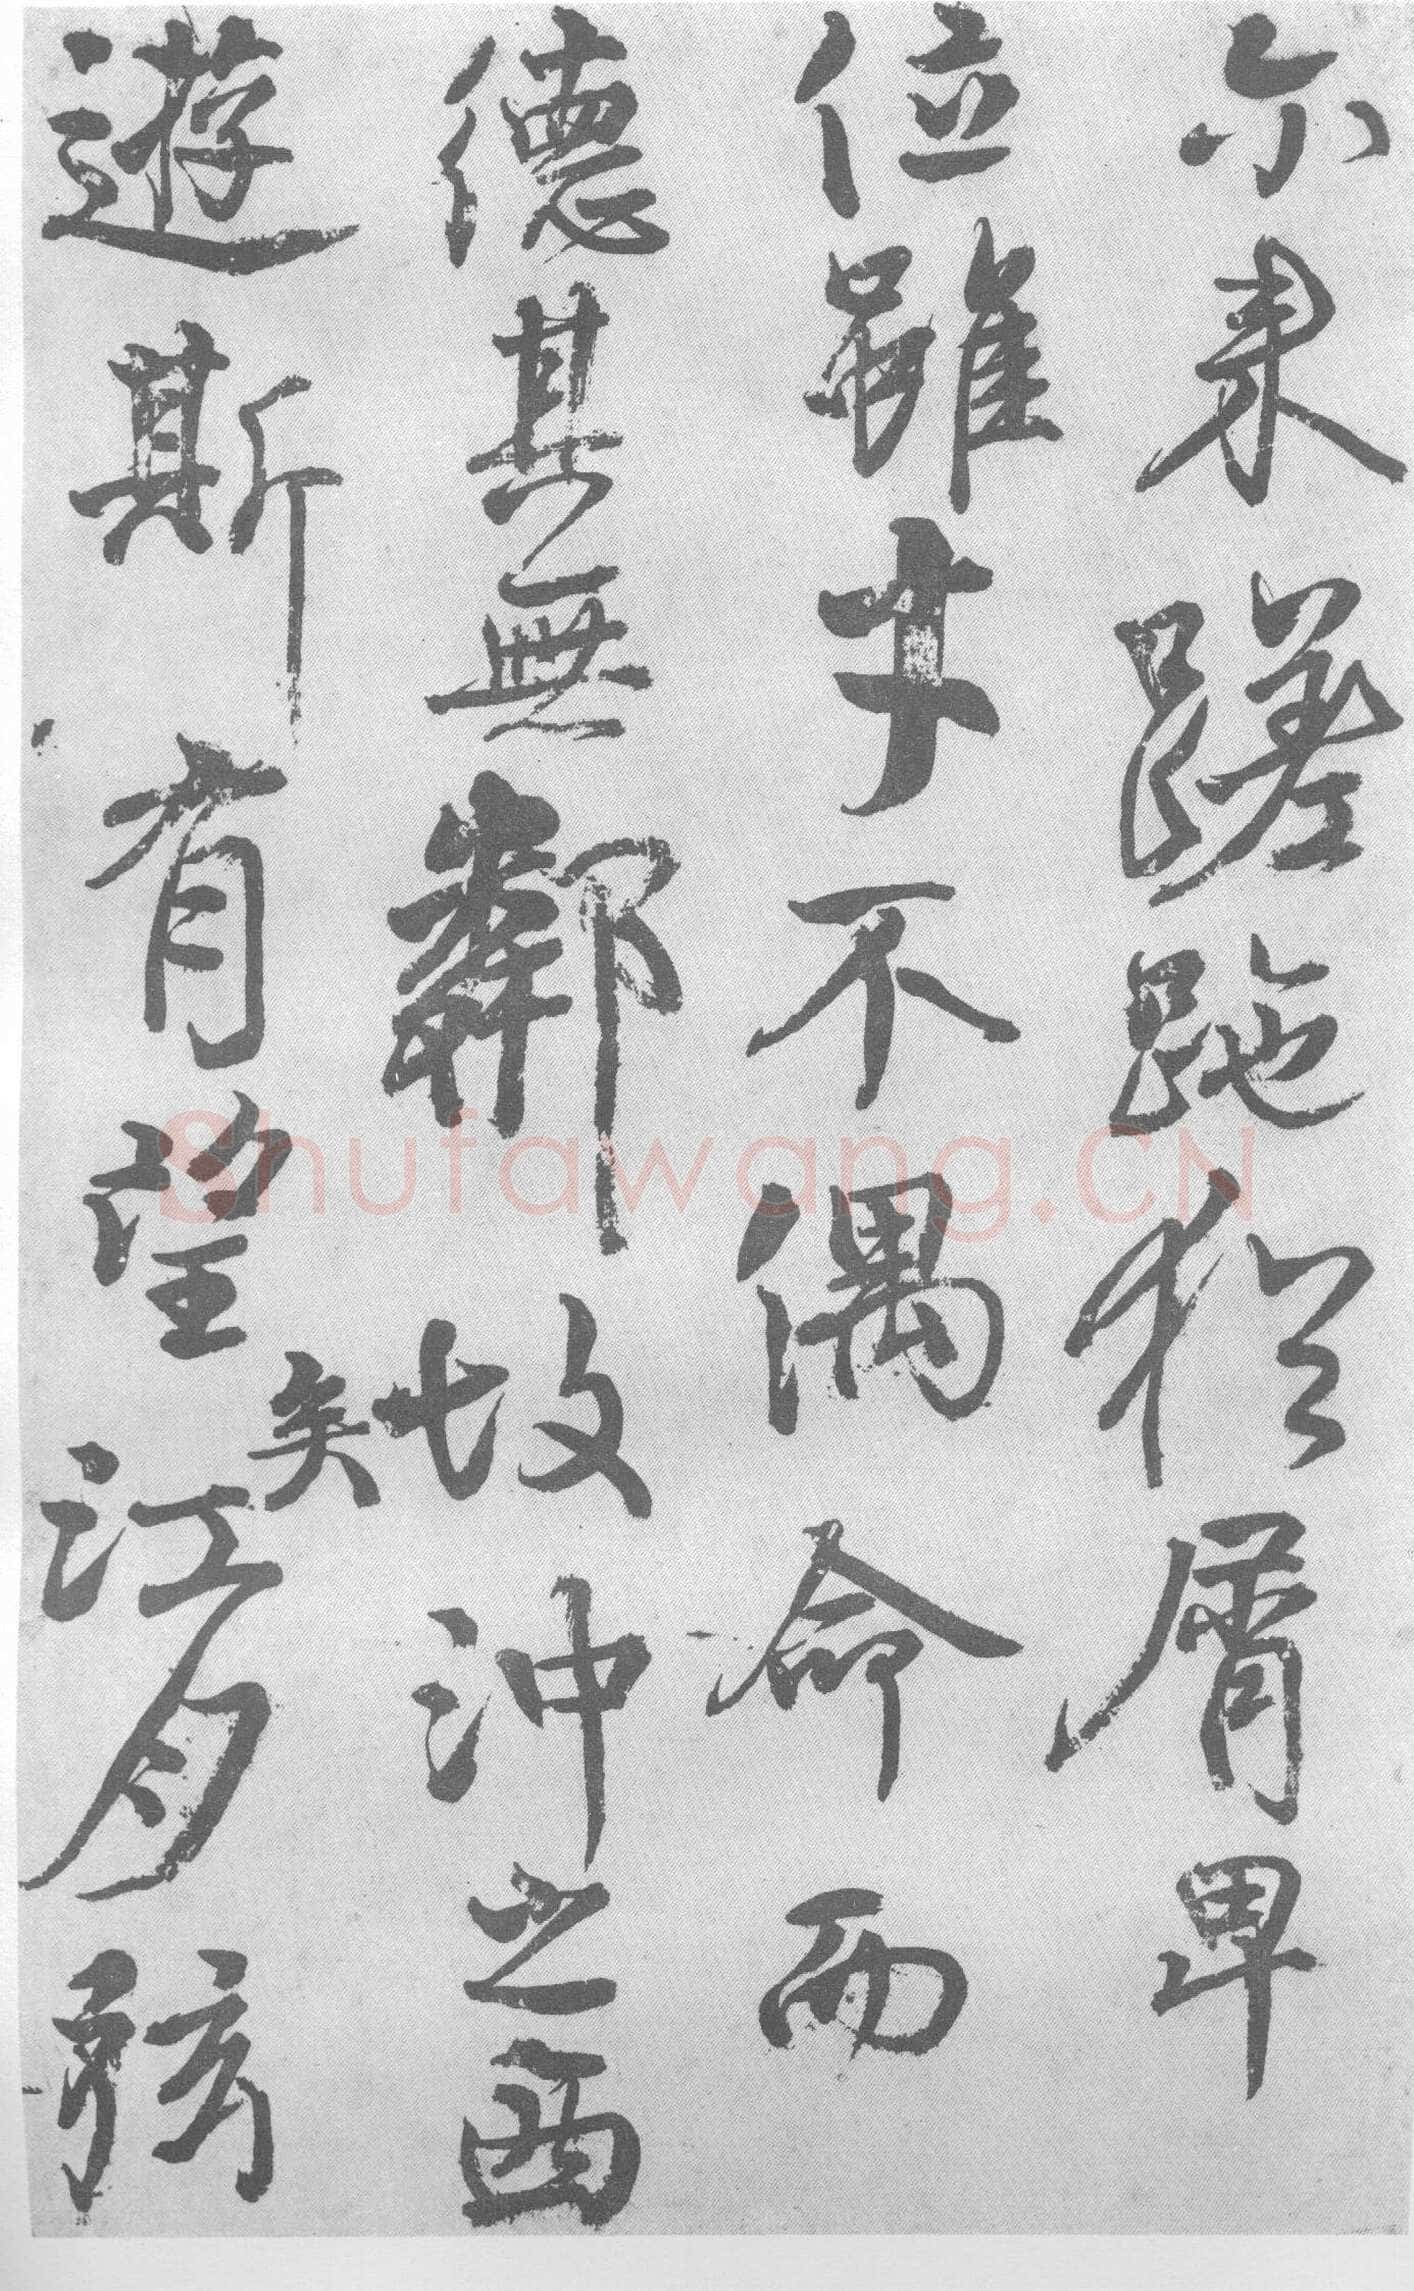 尒来蹉跎猶屑卑
位雖才不偶命而
德其無鄰故沖之西
遊斯有望矣江月弦
Shufawang.CN